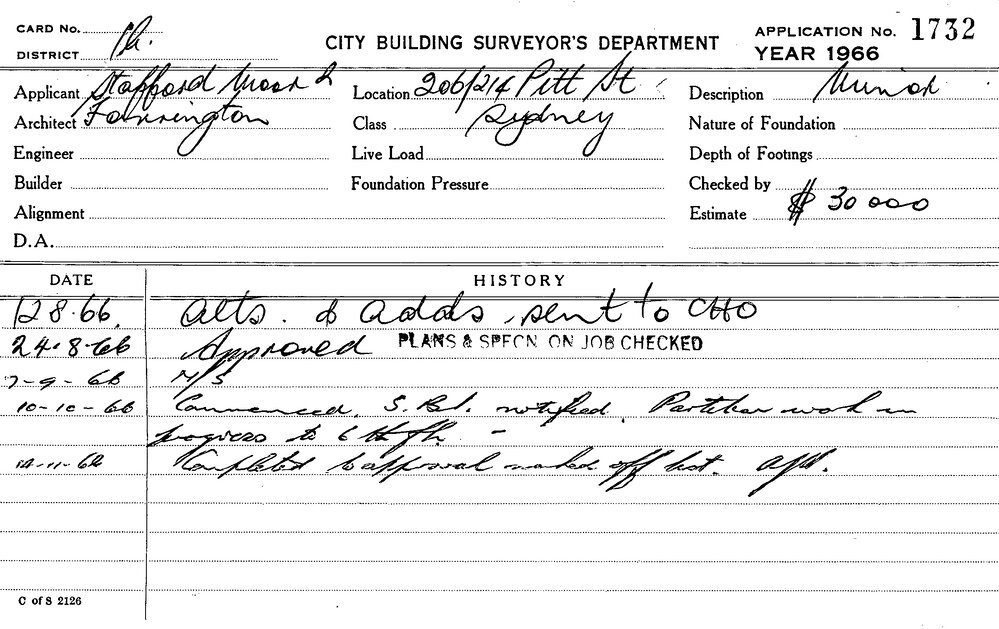 CARD No.
DISTRICT Ph.
CITY BUILDING SURVEYOR'S DEPARTMENT
APPLICATION No. 1732
YEAR 1966
Applicant Stafford Moor &
Architect Farrington
Engineer
Builder
Alignment
D.A.
Location 206/214 Pitt St
Class Sydney
Live Load
Foundation Pressure
Description Minor
Nature of Foundation
Depth of Footings
Checked by
Estimate $ 30000
DATE HISTORY
12 8. 66. Alts. & Adds, sent to CHO
24.8.66 Approved PLANS & SPECN. ON JOB CHECKED
7-9-66 N/S
10-10-66 Commenced. notified. Partition work in
progress to 6th flr. -
14-11-66 Completed to approval marked off list.
C of S 2126